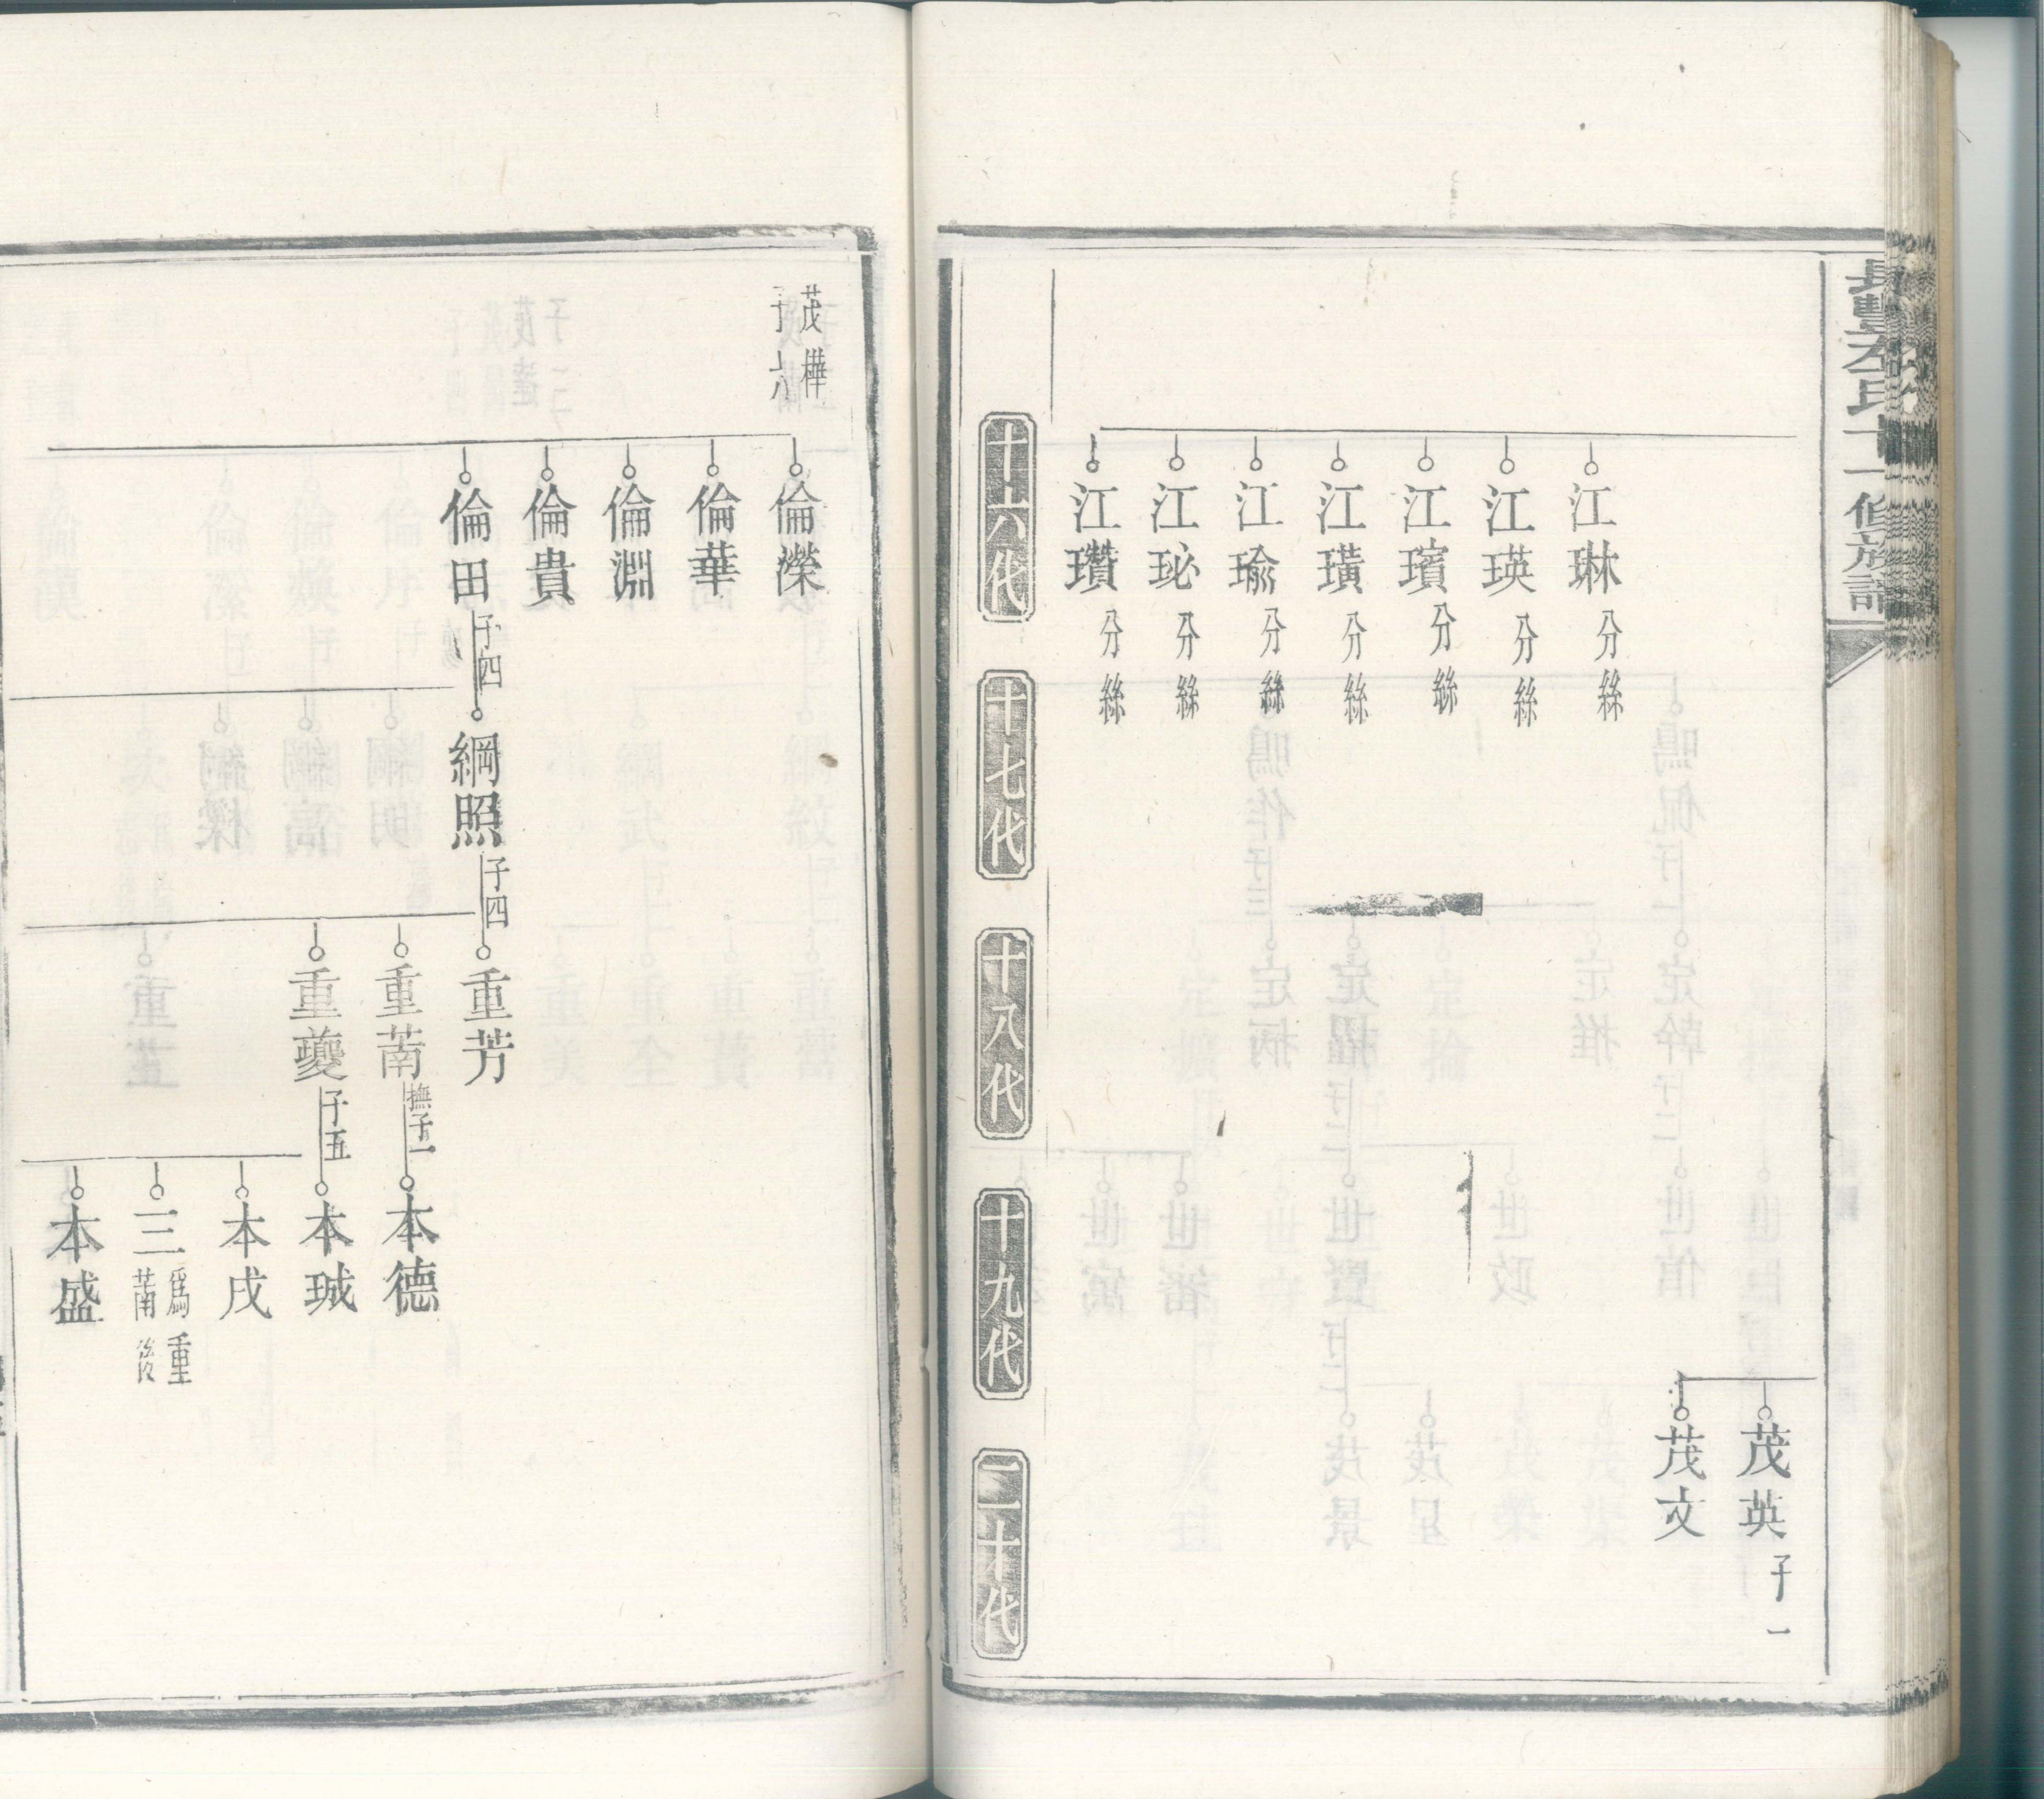 長豐左氏十一修族譜
茂英 子一
茂文
江琳 分絲
江瑛 分絲
江璸 分絲
江璜 分絲
江瑜 分絲
江珌 分絲
江瓚 分絲
十六代
十七代
十八代
十九代
二十代
茂樺
子六
倫濼
倫華
倫淵
倫貴
倫田 子四
綱照 子四
重芳
重萳 撫子一
本德
重夔 子五
本珹
本戌
三 爲重萳後
本盛